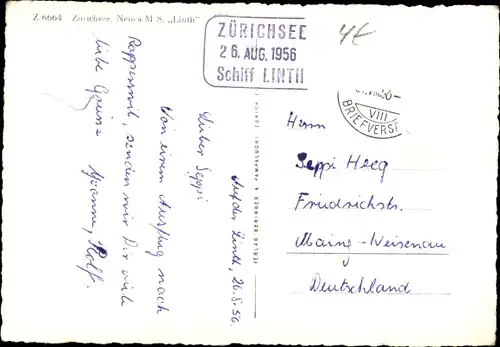 Z 6664 Zürichsee. Neues M.S. „Linth“
ZÜRICHSEE
26. AUG. 1956
Schiff LINTH
4€
VIII
BRIEFVERS
Auf der Linth, 26.8.56
Lieber Seppi
Von einem Ausflug nach
Rapperswil, senden wir Dir viele
liebe Grüsse
Rolf.
Herrn
Seppi Heeg
Friedrichstr.
Mainz-Weisenau
Deutschland